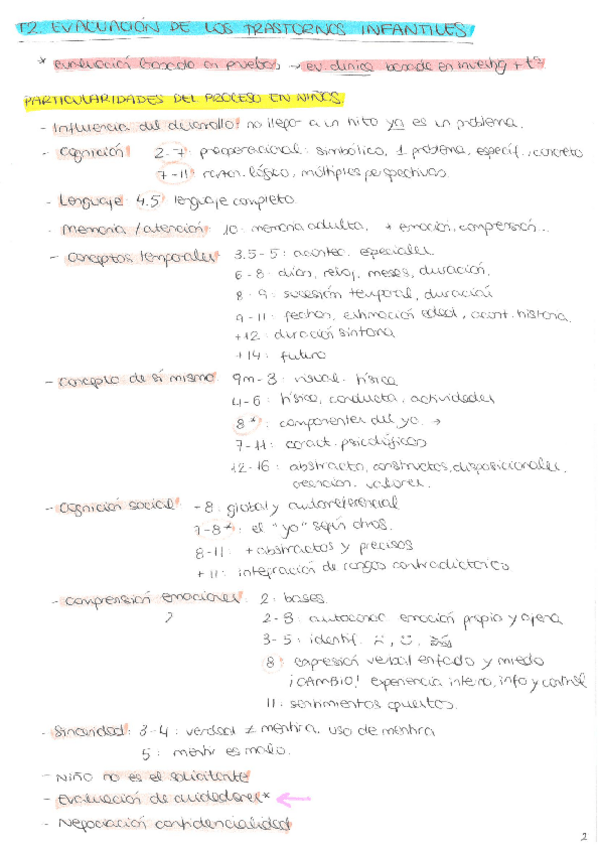 T2. EVALUACIÓN DE LOS TRASTORNOS INFANTILES
* evaluación basada en pruebas → ev. clínica basada en investig + tª
PARTICULARIDADES DEL PROCESO EN NIÑOS.
- Influencia del desarrollo: no llego a un hito ya es un problema.
- Cognición 2-7: preoperacional: simbólico, 1 problema, específ., concreto
7-11: razon. lógico, múltiples perspectivas.
- Lenguaje: 4.5: lenguaje completo.
- Memoria/atención: 10: memoria adulta, + emoción, comprensión...
- conceptos temporales 3.5-5: acontec. especiales.
6-8: días, reloj, meses, duración.
8-9: sucesión temporal, duración
9-11: fechas, estimación edad, acont. historia.
+12: duración síntoma
+14: futuro
- concepto de sí mismo. 9m-3: visual. física
4-6: física, conducta, actividades
8*: componentes del yo →
7-11: caract. psicológicas
12-16: abstracto, constructos, disposicionales,
creencias, valores.
- Cognición social: -8: global y autoreferencial
7-8*: el "yo" según otros.
8-11: + abstractos y precisos
+11: integración de rasgos contradictorios
- Comprensión emociones: 2: bases.
2-3: autoconoc. emoción propia y ajena
3-5: identif.
8: expresión verbal enfado y miedo
¡CAMBIO! experiencia interna, info y control
11: sentimientos opuestos.
- Sinceridad: 3-4: verdad ≠ mentira, uso de mentira
5: mentir es malo.
- NIÑO no es el solicitante
- Evaluación de cuidadores* ←
- Negociación confidencialidad
2